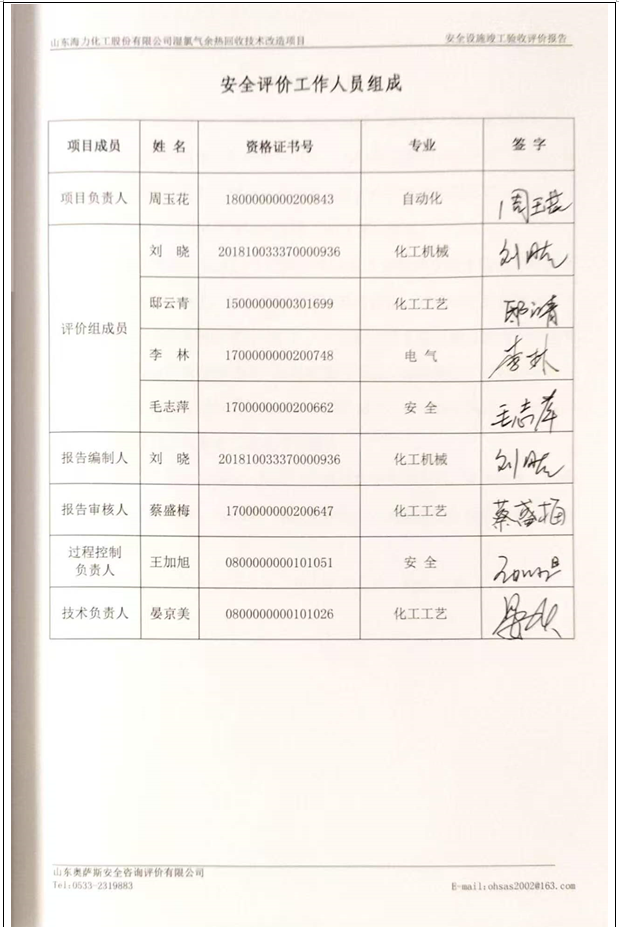 山东海力化工股份有限公司湿氯气余热回收技术改造项目 安全设施竣工验收评价报告
安全评价工作人员组成
项目成员 姓 名 资格证书号 专业 签 字
项目负责人 周玉花 1800000000200843 自动化 周玉花
评价组成员 刘 晓 201810033370000936 化工机械 刘晓
邸云青 1500000000301699 化工工艺
李 林 1700000000200748 电 气 李林
毛志萍 1700000000200662 安 全 毛志萍
报告编制人 刘 晓 201810033370000936 化工机械 刘晓
报告审核人 蔡盛梅 1700000000200647 化工工艺 蔡盛梅
过程控制
负责人 王加旭 0800000000101051 安 全
技术负责人 晏京美 0800000000101026 化工工艺
山东奥萨斯安全咨询评价有限公司
Tel:0533-2319883 E-mail:ohsas2002@163.com